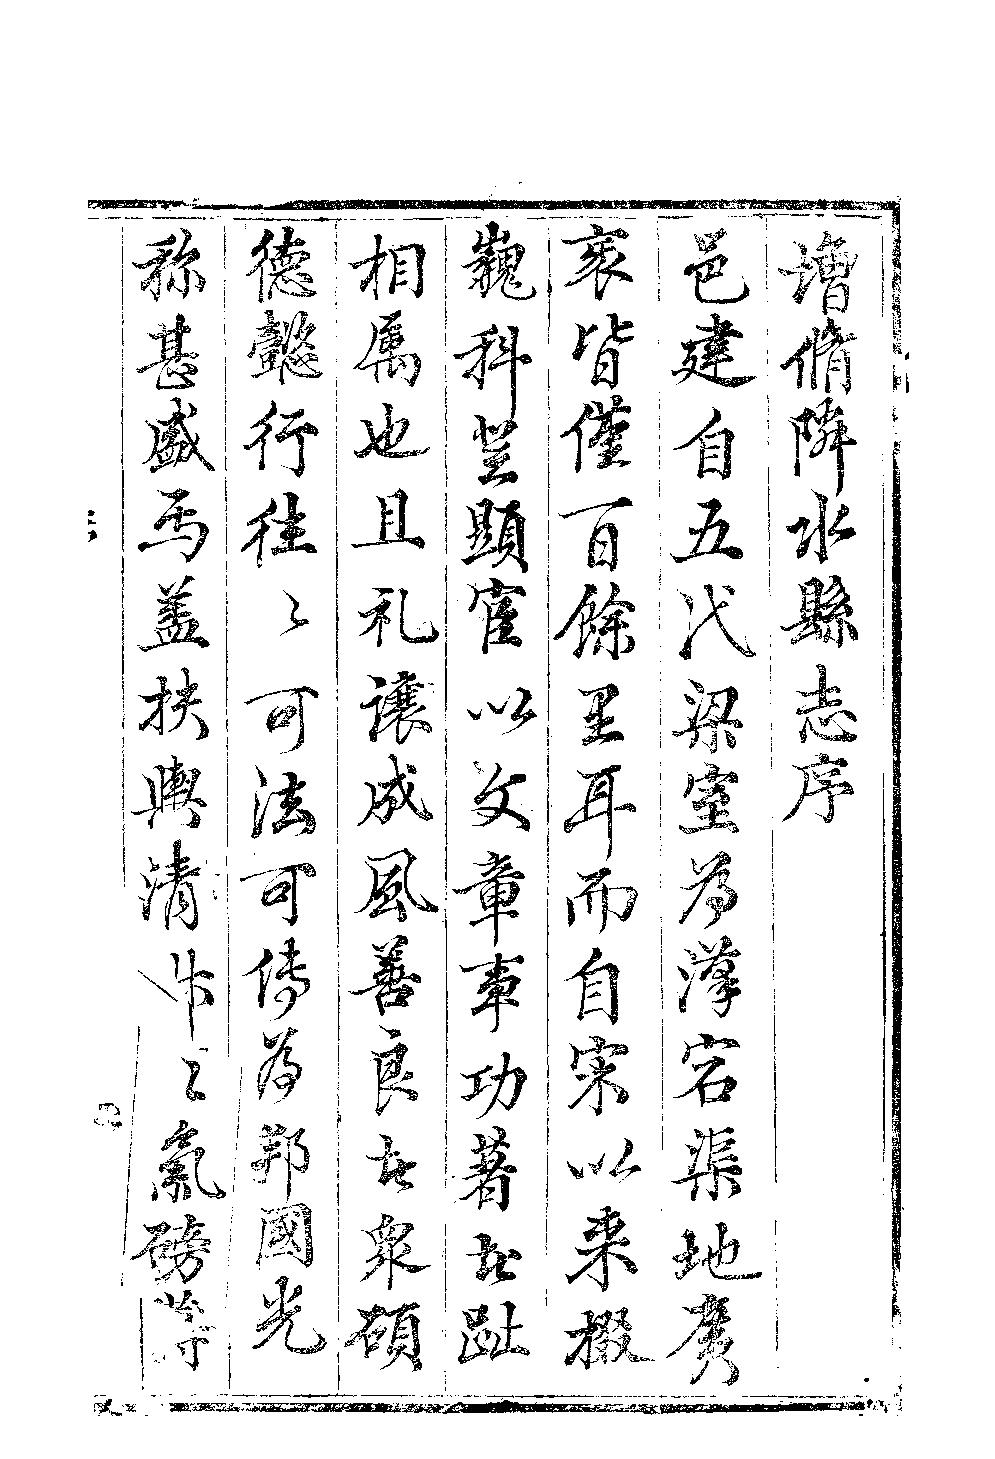 增脩隣水縣志序
邑建自五代梁室為漢宕渠地廣
袤皆僅百餘里耳而自宋以來掇
巍科登顯宦以文章事功著者趾
相属也且礼讓成風善良者衆碩
德懿行往〻可法可傳為邦國光
称甚盛焉盖扶輿清淑之氣磅礴